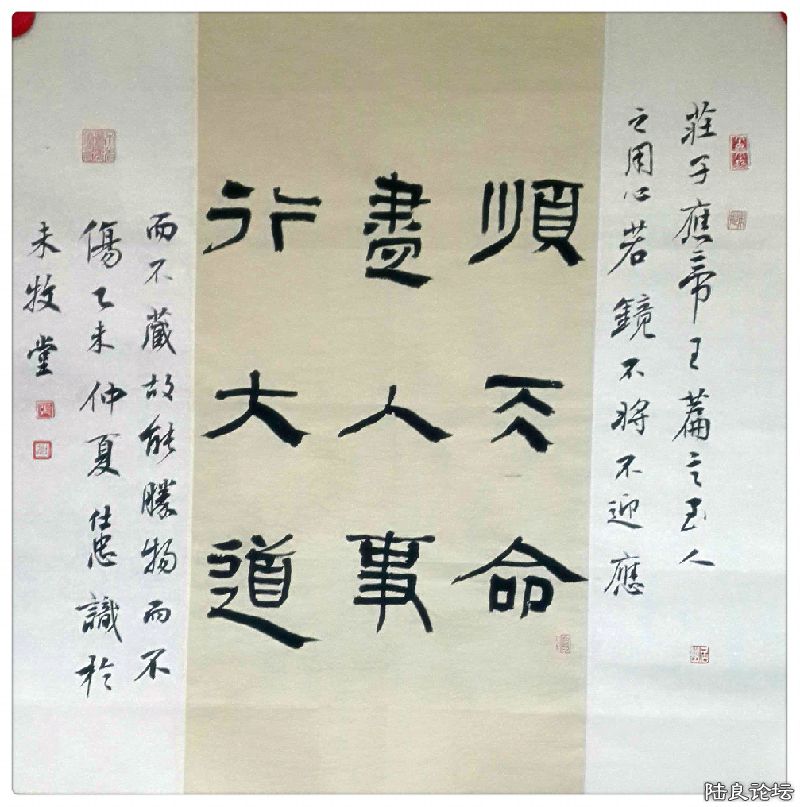 莊子應帝王篇言至人
之用心若鏡不將不迎應
順天命
盡人事
行大道
而不藏故能勝物而不
傷乙未仲夏仕忠識於
未牧堂
陆良论坛